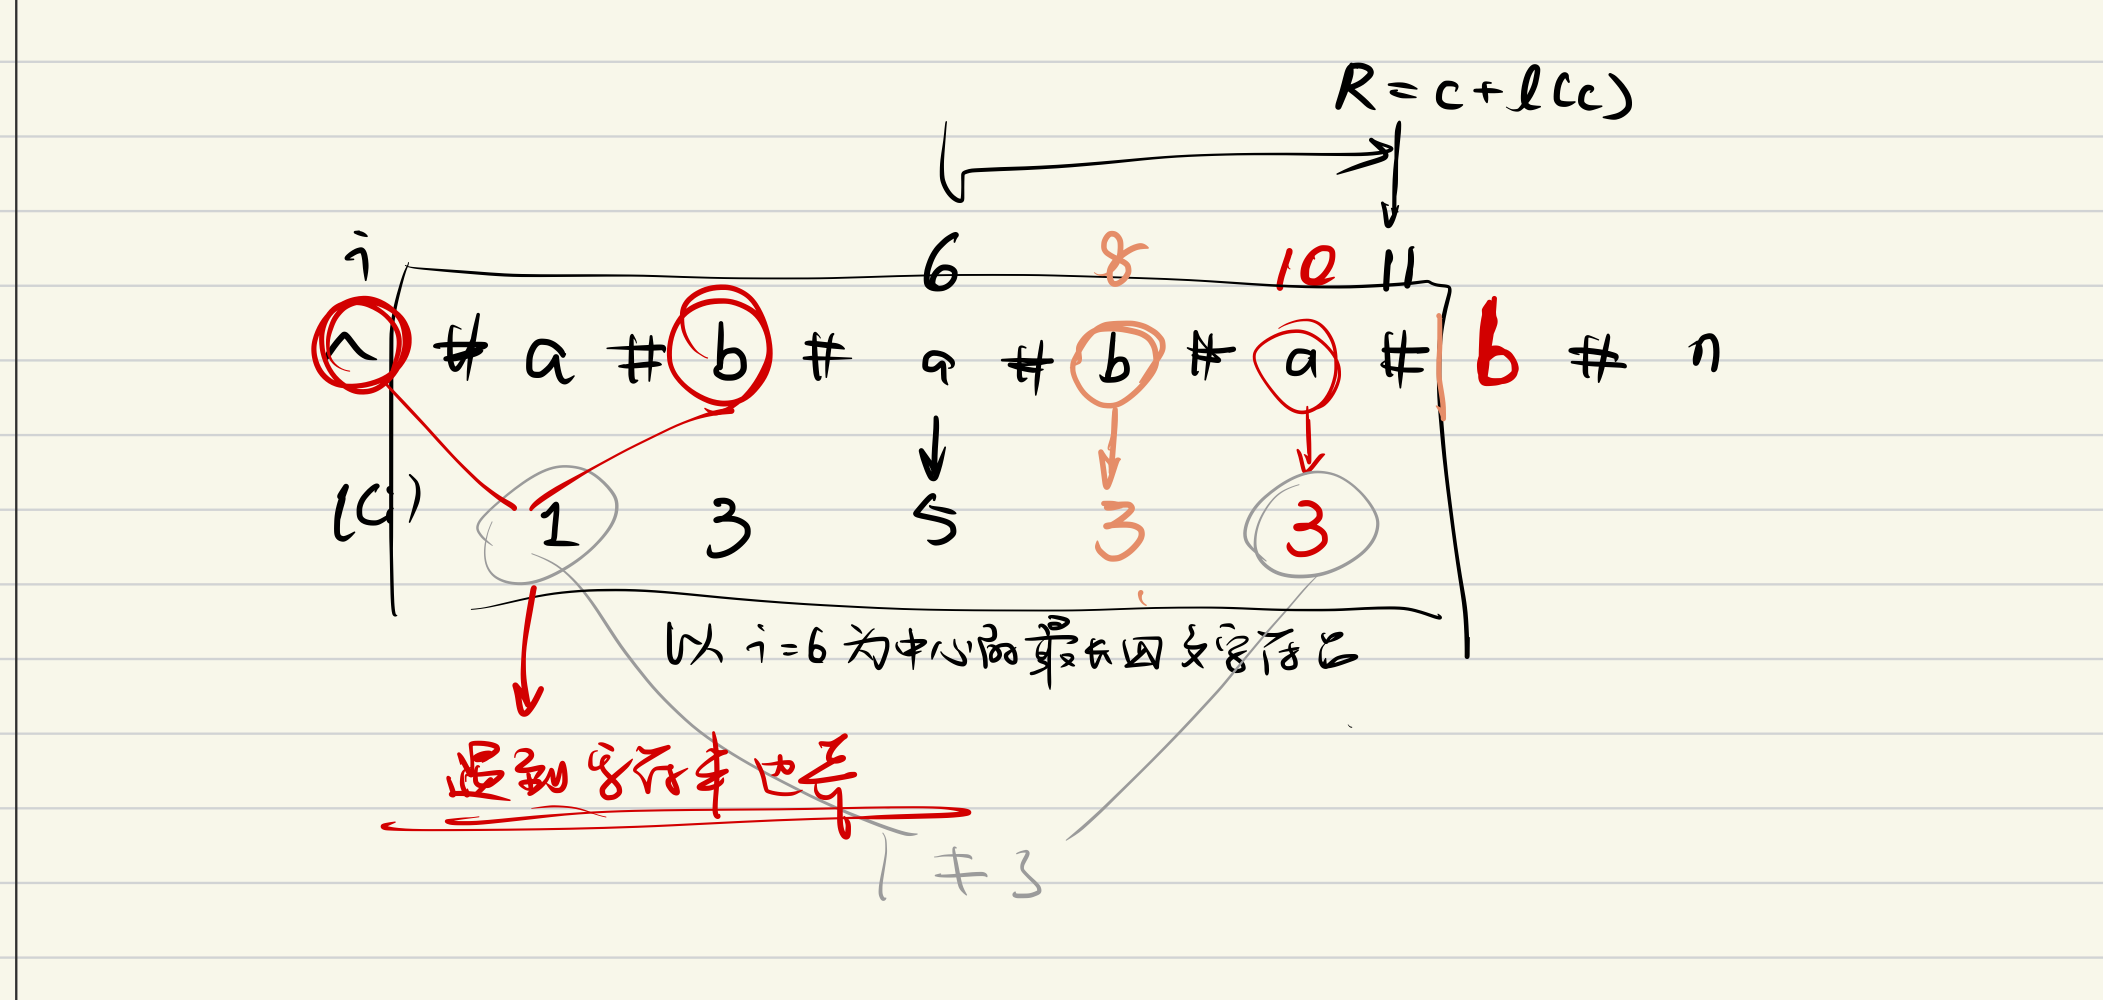 R = c + l(c)
i 6 8 10 11
^ # a # b # a # b # a # b # n
l(i) 1 3 5 3 3
以 i=6 为中心的最长回文字符串
遇到字符串边界
1 ≠ 3